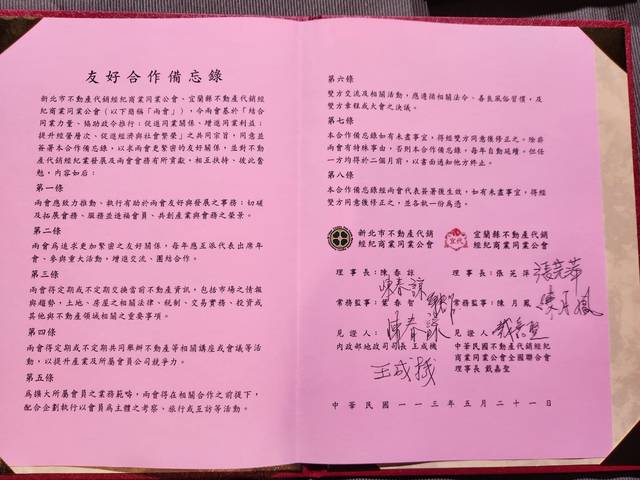 友好合作備忘錄
新北市不動產代銷經紀商業同業公會、宜蘭縣不動產代銷經
紀商業同業公會(以下簡稱「兩會」),今兩會基於「結合
同業力量、協助政令推行;促進同業關係、增進同業利益;
提升經營層次、促進經濟與社會繁榮」之共同宗旨,同意並
簽署本合作備忘錄,以求兩會更緊密的友好關係,並對不動
產代銷經紀業發展及兩會會務有所貢獻,相互扶持、彼此奮
勉,內容如后:
第一條
兩會應致力推動、執行有助於兩會友好與發展之事務:切磋
及拓展會務、服務並造福會員、共創產業與會務之榮景。
第二條
兩會為追求更加緊密之友好關係,每年應互派代表出席年
會、參與重大活動,增進交流、團結合作。
第三條
兩會得定期或不定期交換當前不動產資訊,包括市場之情報
與趨勢,土地、房屋之相關法律、稅制、交易實務、投資或
其他與不動產領域相關之重要事項。
第四條
兩會得定期或不定期共同舉辦不動產等相關講座或會議等活
動,以提升產業及所屬會員公司競爭力。
第五條
為擴大所屬會員之業務範疇,兩會得在相關合作之前提下,
配合企劃執行以會員為主體之考察、旅行或互訪等活動。
第六條
雙方交流及相關活動,應遵循相關法令、善良風俗習慣,及
雙方章程或大會之決議。
第七條
本合作備忘錄如有未盡事宜,得經雙方同意後修正之。除非
兩會有特殊事由,否則本合作備忘錄,每年自動延續。但任
一方均得於二個月前,以書面通知他方終止。
第八條
本合作備忘錄經兩會代表簽署後生效,如有未盡事宜,得經
雙方同意後修正之,並各執一份為憑。
新北市不動產代銷
經紀商業同業公會
宜代
宜蘭縣不動產代銷
經紀商業同業公會
理事長:陳春諒
陳春諒
理事長:張莞萍
張莞萍
常務監事:葉春智
常務監事:陳月鳳
陳月鳳
見證人:
陳春諒
見證人
戴嘉聖
內政部地政司司長 王成機
王成機
中華民國不動產代銷經紀
商業同業公會全國聯合會
理事長 戴嘉聖
中華民國一一三年五月二十一日